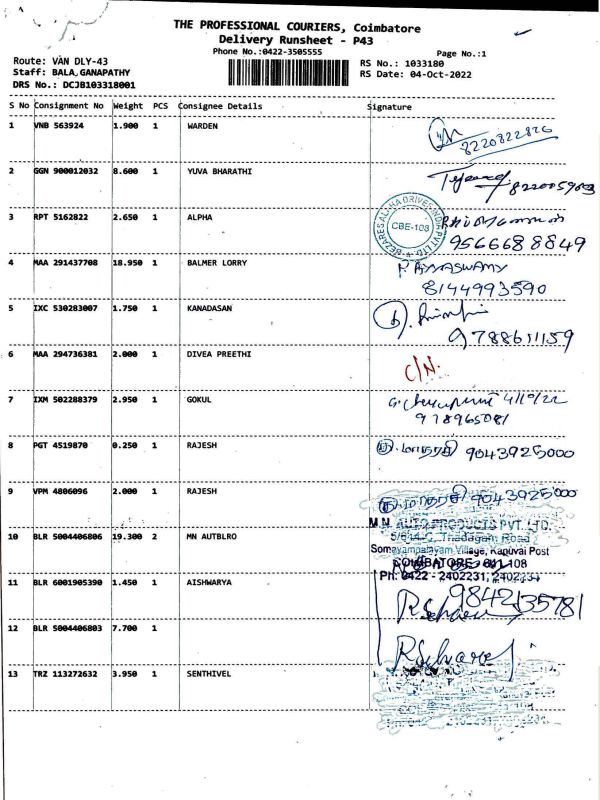 THE PROFESSIONAL COURIERS, Coimbatore
Delivery Runsheet - P43
Phone No.:0422-3505555
Page No.:1
Route: VAN DLY-43
RS No.: 1033180
Staff: BALA,GANAPATHY
RS Date: 04-Oct-2022
DRS No.: DCJB103318001
S No Consignment No Weight PCS Consignee Details Signature
1 VNB 563924 1.900 1 WARDEN
8220822826
2 GGN 900012032 8.600 1 YUVA BHARATHI
3 RPT 5162822 2.650 1 ALPHA
CBE-108
9566688849
4 MAA 291437708 18.950 1 BALMER LORRY
P. AYYASWAMY
8144993590
5 IXC 530283007 1.750 1 KANADASAN
9788611159
6 MAA 294736381 2.000 1 DIVEA PREETHI
C/N.
7 IXM 502288379 2.950 1 GOKUL
4/10/22
8 PGT 4519870 0.250 1 RAJESH
9043925000
9 VPM 4806096 2.000 1 RAJESH
9043925000
M.N. AUTO PRODUCTS PVT. LTD.
5/614-C, Thadagam Road
10 BLR 5004406806 19.300 2 MN AUTBLRO
Somayampalayam Village, Kanuvai Post
COIMBATORE - 641 108
PH: 0422 - 2402231, 2402331
11 BLR 6001905390 1.450 1 AISHWARYA
9842135781
12 BLR 5004406803 7.700 1
13 TRZ 113272632 3.950 1 SENTHIVEL